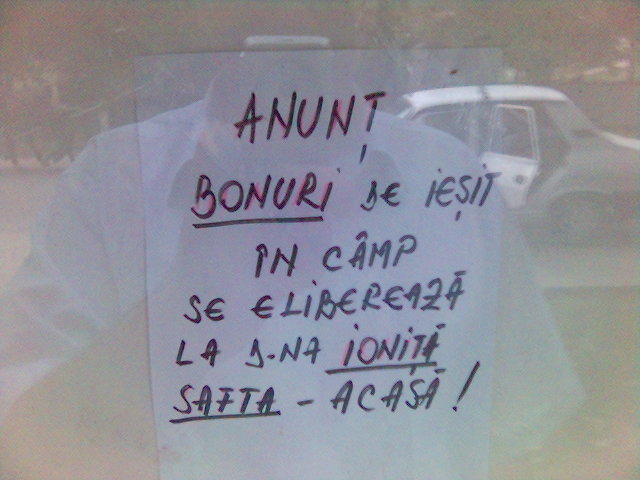 ANUNȚ
BONURI DE IEȘIT
ÎN CÂMP
SE ELIBEREAZĂ
LA D-NA IONIȚĂ
SAFTA - ACASĂ!